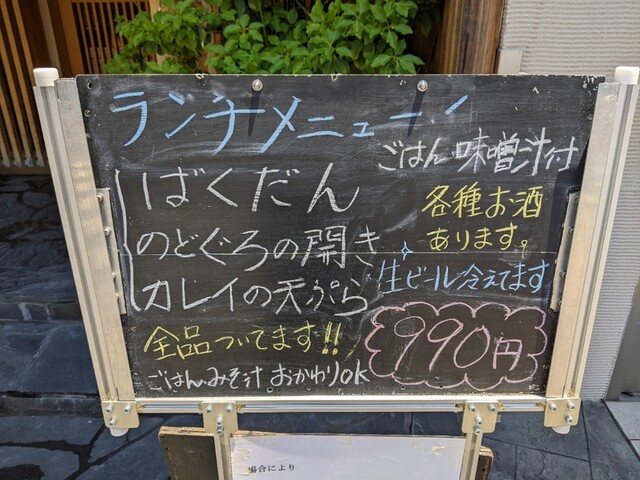 ランチメニュー!
ごはん 味噌汁付
ばくだん
のどぐろの開き
カレイの天ぷら
各種お酒
あります。
生ビール冷えてます
全品ついてます!!
990円
ごはん、みそ汁 おかわりOK
場合により